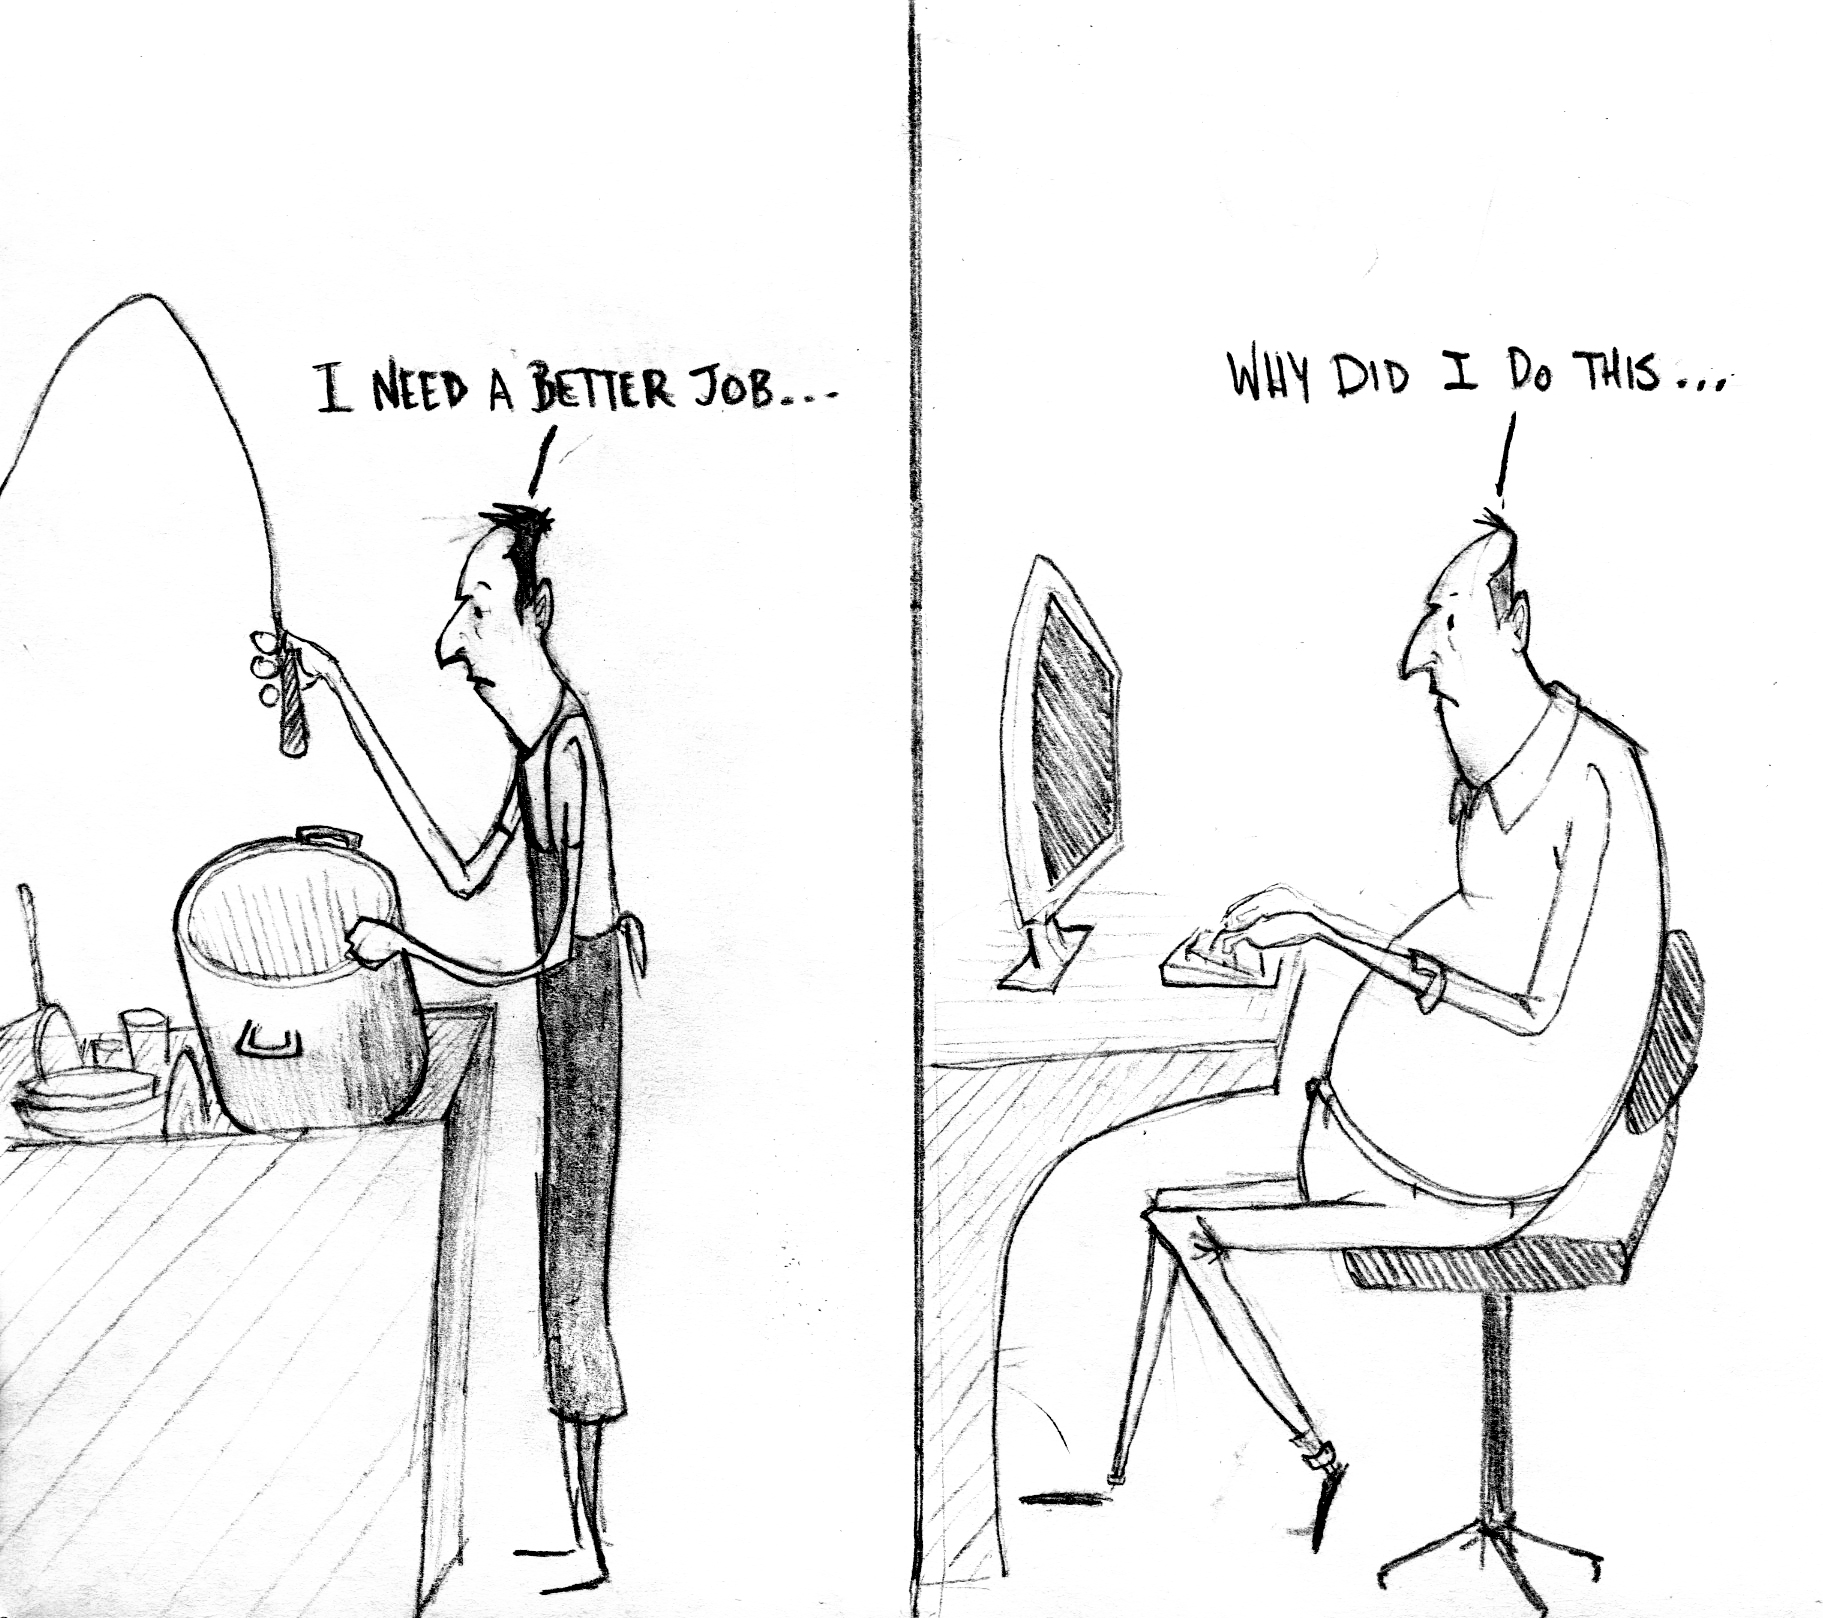 I NEED A BETTER JOB...
WHY DID I DO THIS...